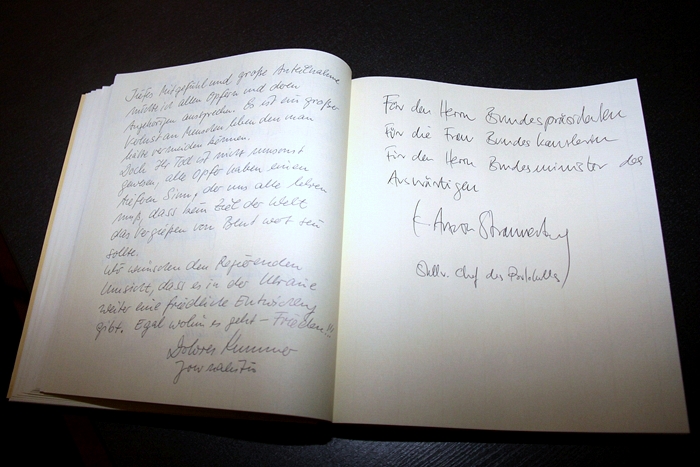 Tiefes Mitgefühl und große Anteilnahme
möchte ich allen Opfern und deren
Angehörigen aussprechen. Es ist ein großer
Verlust an Menschenleben den man
hätte vermeiden können.
Doch Ihr Tod ist nicht umsonst
gewesen, alle Opfer haben einen
tiefen Sinn, der uns alle lehren
muß, dass kein Ziel der Welt
das Vergießen von Blut wert sein
sollte.
Wir wünschen den Regierenden
Umsicht, dass es in der Ukraine
weiter eine friedliche Entwicklung
gibt. Egal wohin es geht – Frieden!!!
Dolores Kummer
Journalistin
Für den Herrn Bundespräsidenten
Für die Frau Bundeskanzlerin
Für den Herrn Bundesminister des
Auswärtigen
Stellv. Chef des Protokolls